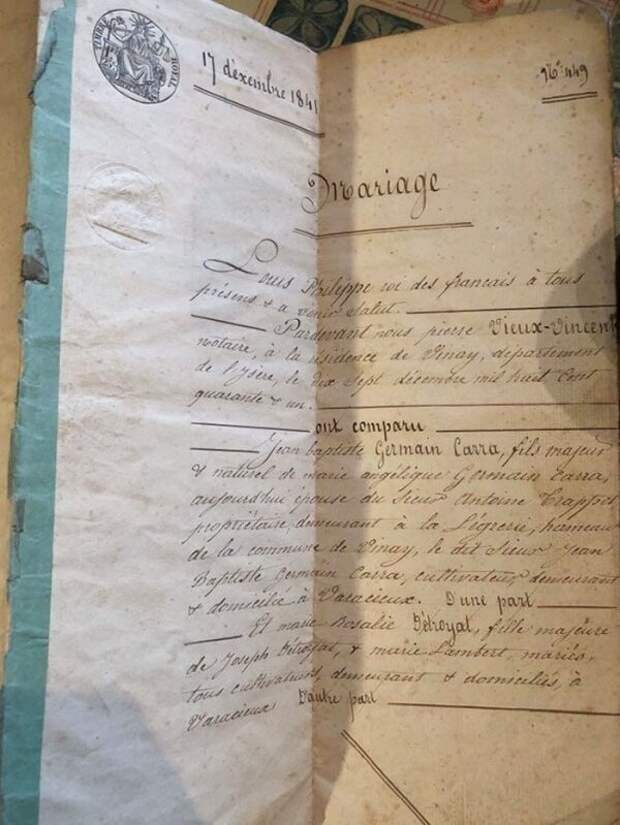 TIMBRE ROYAL
17 décembre 1841
N° 449
Mariage
Louis Philippe roi des francais à tous
présens & a venir Salut.
Pardevant nous pierre Vieux-Vincent
notaire, à la résidence de Vinay, département
de l'Isère, le dix Sept décembre mil huit Cent
quarante & un.
ont comparu
Jean baptiste Germain Carra, fils majeur
& naturel de marie angélique Germain Carra,
aujourd'hui épouse du Sieur Antoine Trappet
propriétaire, demeurant à la Légrerie, hameau
de la commune de Vinay, le dit Sieur Jean
Baptiste Germain Carra, cultivateur, demeurant
& domicilié à Varacieux. D'une part
Et marie Rosalie Détroyat, fille majeure
de Joseph Détroyat, & marie Lambert, mariés,
tous cultivateurs, demeurant & domiciliés, à
Varacieux D'autre part